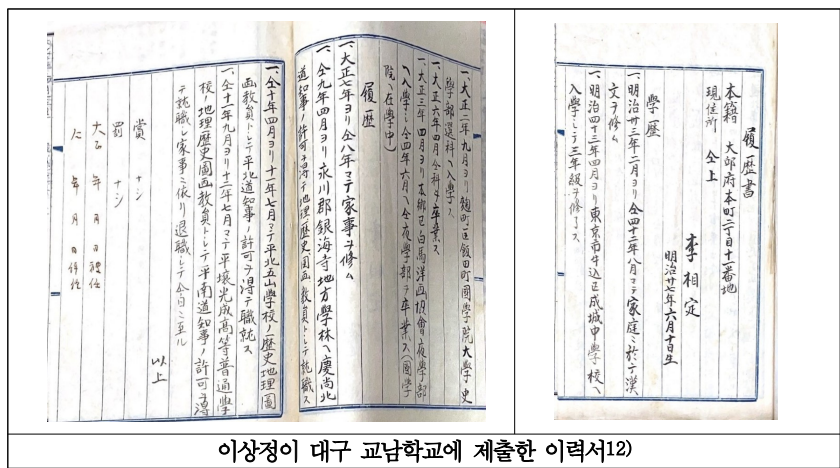 履歴書
本籍 大邱府本町二丁目十一番地
現住所 仝上
李相定
明治廿七年六月十日生
学歴
一、明治卅三年二月ヨリ仝四十一年八月マテ家庭ニ於テ漢
文ヲ修ム
一、明治四十三年四月ヨリ東京市牛込区成城中学校ヘ
入学シテ三年級ヲ修了ス
一、大正二年九月ヨリ麹町区飯田町國学院大学史
学部選科ヘ入学ス
一、大正六年四月仝科ヲ卒業ス
一、大正三年四月ヨリ本郷区白馬洋画協會夜学部
ヘ入学シ仝四年六月ヘ仝夜学部ヲ卒業ス(國学
院ヘ在学中)
履歴
一、大正七年ヨリ仝八年マテ家事ヲ修ム
一、仝九年四月ヨリ永川郡銀海寺地方学林ヘ慶尚北
道知事ノ許可ヲ得テ地理歴史図画教員トシテ就職ス
一、仝十年四月ヨリ十一年七月マテ平北五山学校ノ歴史地理圖
画教員トシテ平北道知事ノ許可ヲ得テ職就ス
一、仝十一年九月ヨリ十二年七月マテ平壌光成高等普通学
校ノ地理歴史圖画教員トシテ平南道知事ノ許可ヲ得
テ就職シ家事ニ依リ退職シテ今日ニ至ル
以上
賞 ナシ
罰 ナシ
大正 年 月 日
仝 年 月 日
이상정이 대구 교남학교에 제출한 이력서12)